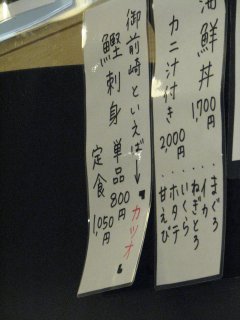 海鮮丼 1,700円
カニ汁付き 2,000円
まぐろ
イカ
ねぎとろ
いくら
ホタテ
甘えび
御前崎といえば→カツオ
鰹刺身 単品 800円
定食 1,050円